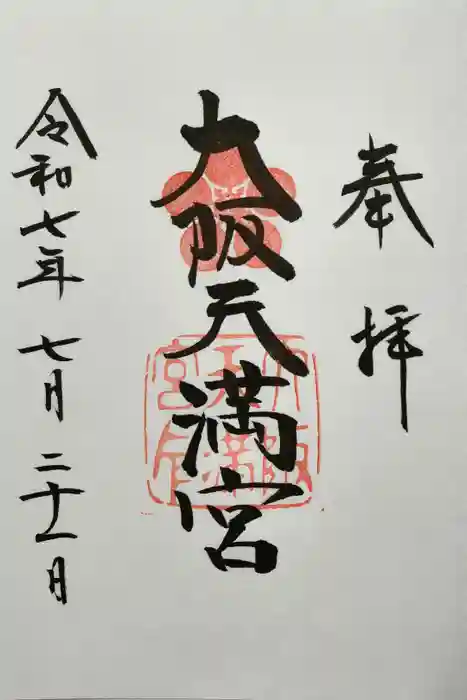 奉拝
大阪天満宮
令和七年 七月 二十一日